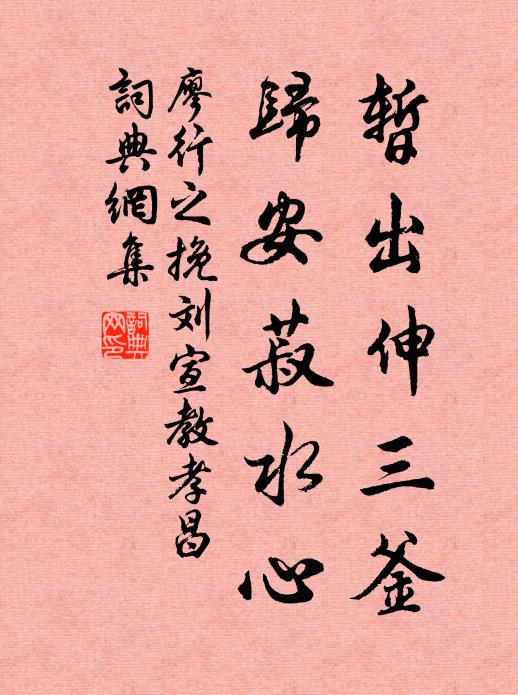 暫出伸三釜
歸安菽水心
廖行之挽刘宣教孝昌
詞典網集
詞典
网印